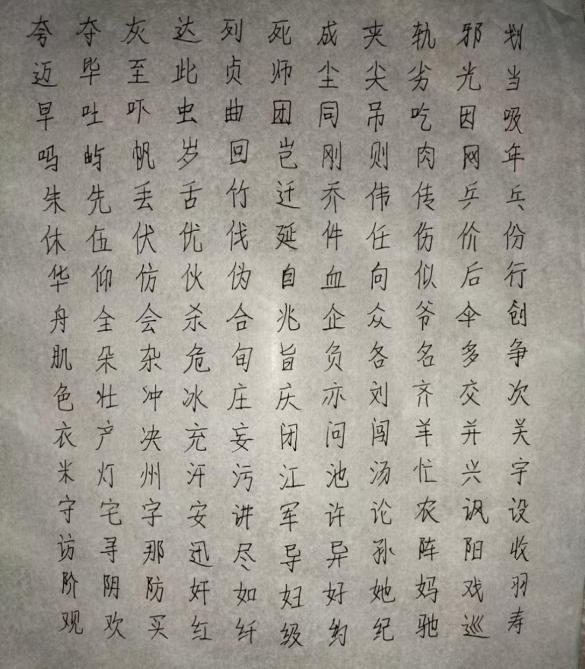 夸夺灰达列死成夹轨邪划
迈毕至此贞师尘尖劣光当
早吐吓虫曲团同吊吃因吸
吗屿帆岁回岂刚则肉网年
朱先丢舌竹迁乔伟传乒乓
休伍伏优伐延件任伤价份
华仰仿伙伪自血向似后行
舟全会杀合兆企众爷伞创
肌朵杂危旬旨负各名多争
色壮冲冰庄庆亦刘齐交次
衣产决充妄闭问闯羊并关
米灯州汗污江池汤忙兴宇
守宅字安讲军许论农讽设
访寻那迅尽导异孙阵阳收
阶阴防奸如妇好她妈戏羽
观欢买红纤级约纪驰巡寿